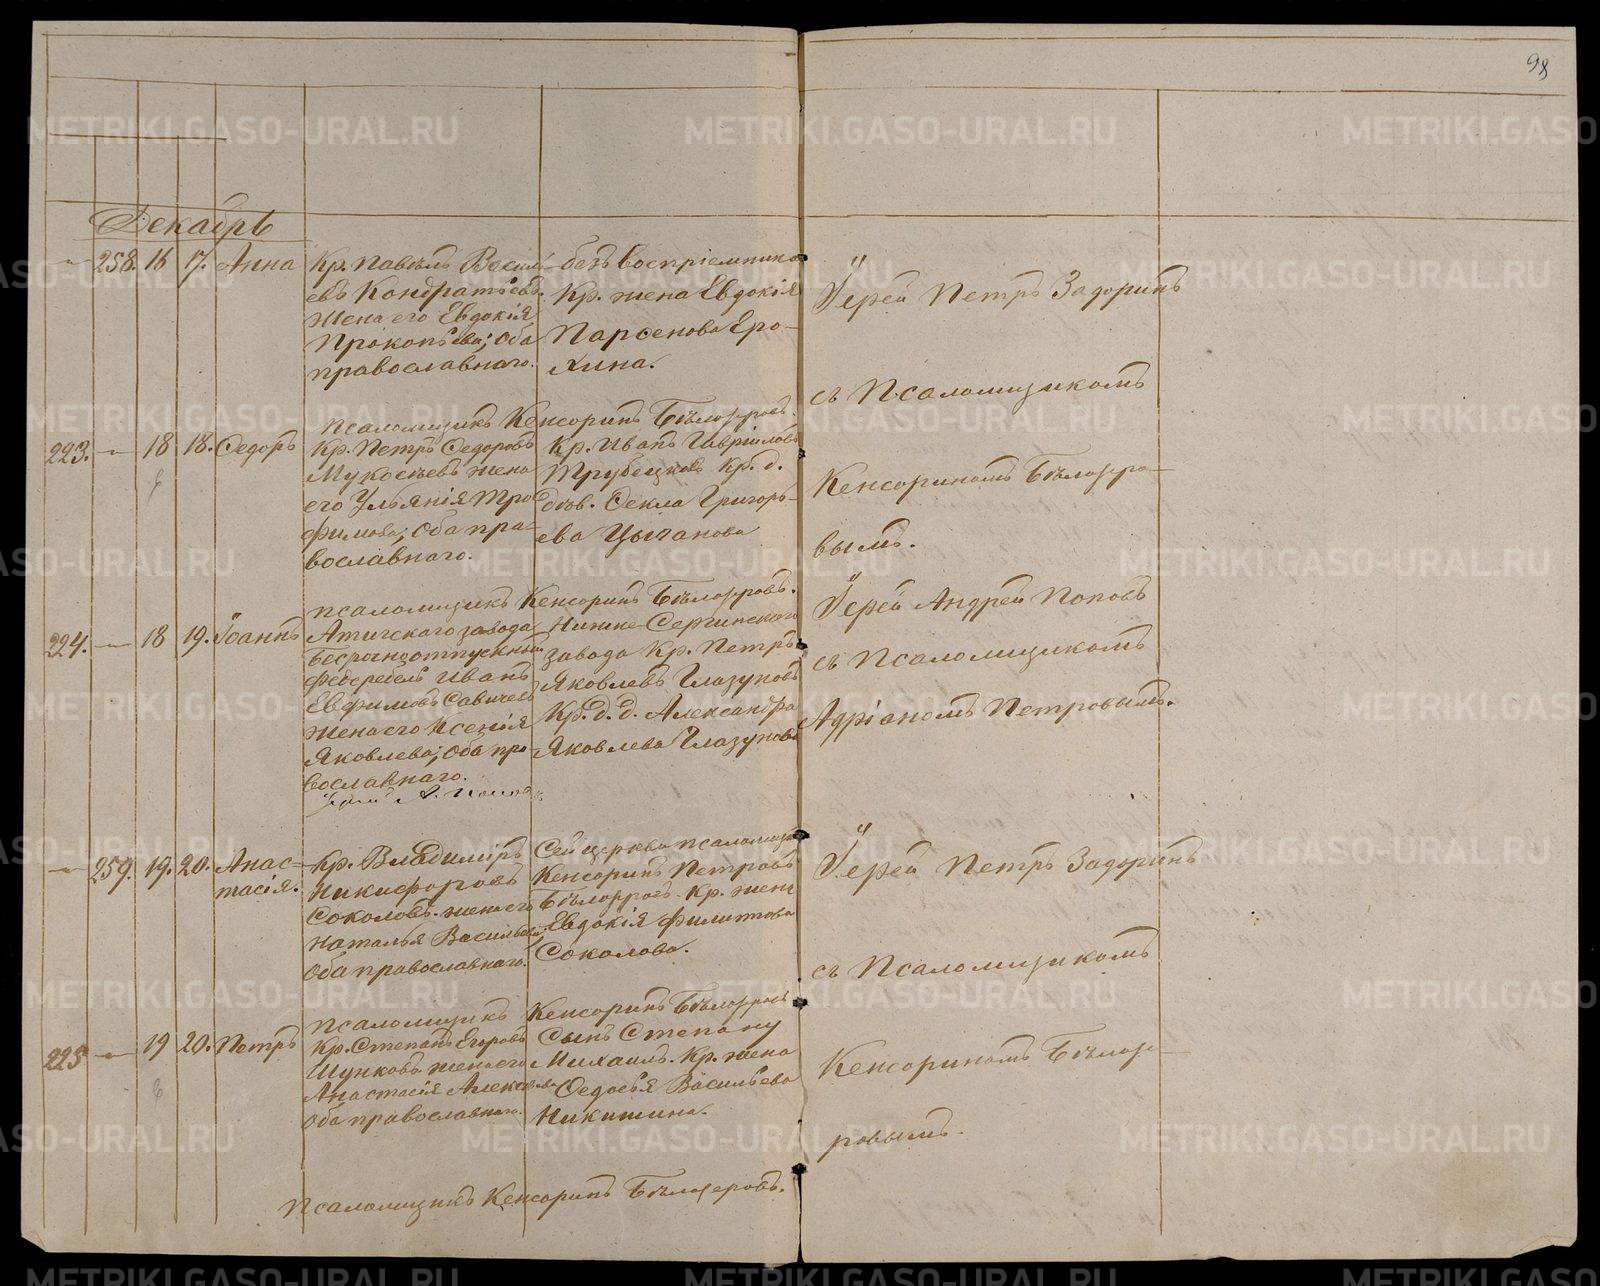 98
Декабрь
258. 16 17. Анна
Кр. Павелъ Василь-
евъ Кондратьевъ.
жена его Евдокія
Прокопьева; оба
православнаго.
безъ воспріемника
Кр. жена Евдокія
Парсенова Еро-
хина.
Іерей Петръ Задоринъ
съ Псаломщикомъ
Кенсориномъ Бѣлозеро-
вымъ.
псаломщикъ Кенсоринъ Бѣлозеровъ.
223. 18 18. Ѳедоръ
Кр. Петръ Ѳедоровъ
жена
его Ульянія Тро
фимова; оба пра-
вославнаго.
Кр. Иванъ Гавріловъ
Трубецковъ Кр. д.
дѣв. Ѳекла Григорь-
ева Цыганова
псаломщикъ Кенсоринъ Бѣлозеровъ.
224. 18 19. Іоаннъ
Атигскаго завода
феберебель Иванъ
Евфимовъ Савичевъ
жена его Ксенія
Яковлева; оба пра-
вославнаго.
Нижне-Сергинскаго
завода Кр. Петръ
Яковлевъ Глазуновъ
Кр. д. д. Александра
Яковлева Глазунова
Іерей Андрей Поповъ
съ Псаломщикомъ
Адріаномъ Петровымъ.
А. Поповъ
259. 19. 20. Анас-
тасія.
Кр. Владиміръ
Никифоровъ
Соколовъ. жена его
Наталья Васильева
оба православнаго.
Сей церкви псаломщикъ
Кенсоринъ Петровъ
Бѣлозеровъ. Кр. жена
Евдокія Филиппова
Соколова.
Іерей Петръ Задоринъ
съ Псаломщикомъ
Кенсориномъ Бѣлозе-
ровымъ.
псаломщикъ Кенсоринъ Бѣлозеровъ
225 19 20. Петръ
Кр. Степанъ Егоровъ
Шунковъ жена его
Анастасія Алексѣева
оба православнаго.
Сынъ Степану
Михаилъ. Кр. жена
Ѳедосья Васильева
Никитина.
Псаломщикъ Кенсоринъ Бѣлозеровъ.
METRIKI.GASO-URAL.RU